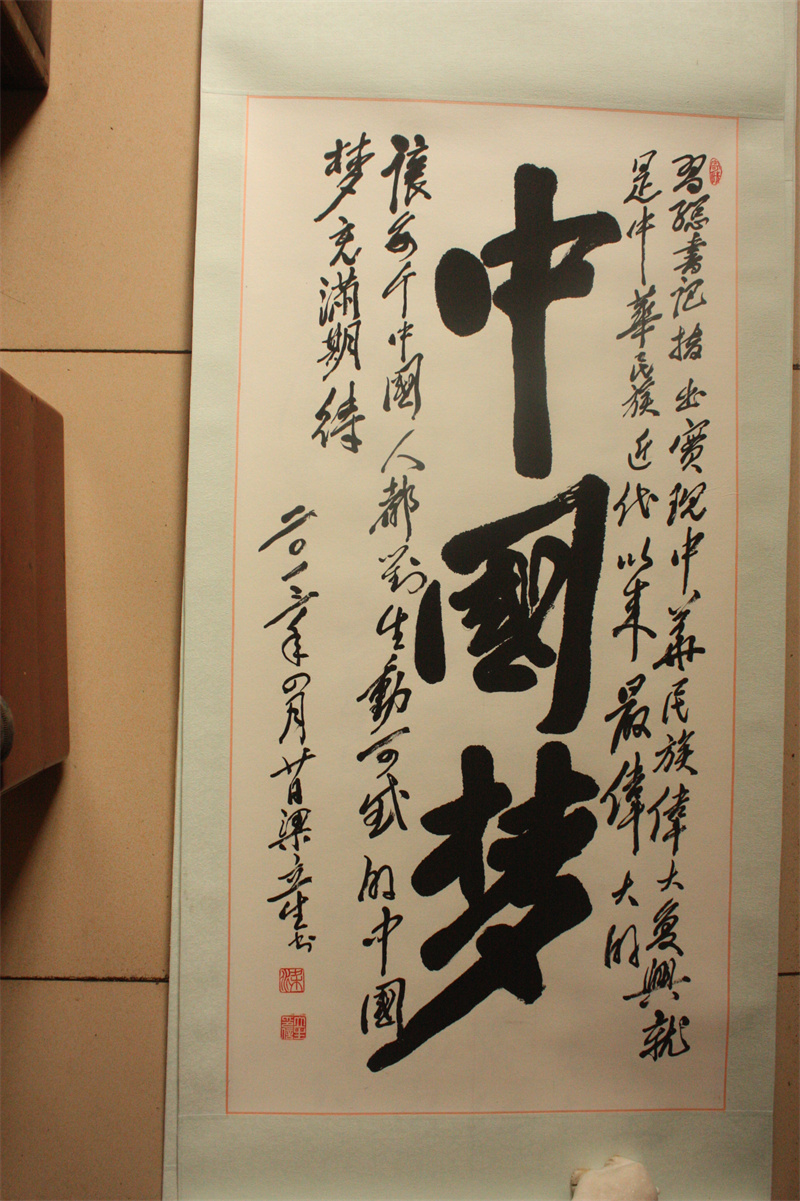 習總書記指出實現中華民族偉大復興就
是中華民族近代以來最偉大的
中國梦
讓每个中國人都對生動可感的中國
梦充滿期待
二〇一三年四月廿日梁立生书